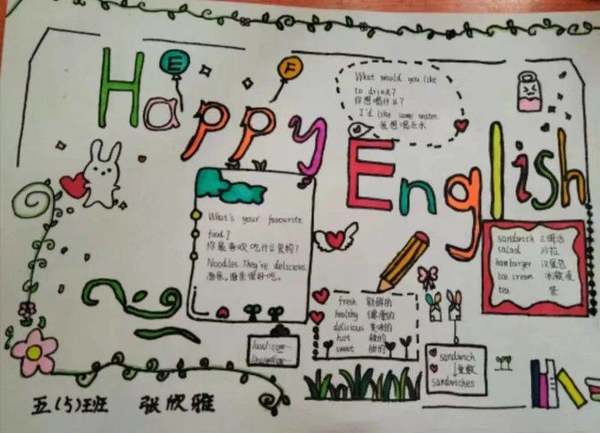 Happy
English
E
F
What would you like
to drink?
你想喝什么?
I'd like some water.
我想喝点水
What's your favourite
food?
你最喜欢吃什么食物?
Noodles. They're delicious.
面条。面条很好吃。
fresh 新鲜的
healthy 健康的
delicious 美味的
hot 辣的
sweet 甜的
sandwich 三明治
salad 沙拉
hamburger 汉堡包
ice cream 冰激凌
tea 茶
sandwich
↓复数
sandwiches
五(5)班 张欣雅